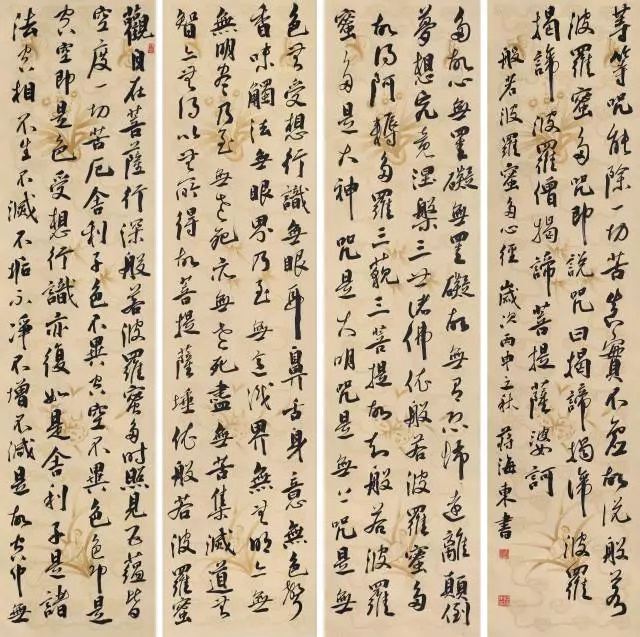 觀自在菩薩行深般若波羅蜜多時照見五蘊皆
空度一切苦厄舍利子色不異空空不異色色即是
空空即是色受想行識亦復如是舍利子是諸
法空相不生不滅不垢不淨不增不減是故空中無
色無受想行識無眼耳鼻舌身意無色聲
香味觸法無眼界乃至無意識界無無明亦無
無明盡乃至無老死亦無老死盡無苦集滅道無
智亦無得以無所得故菩提薩埵依般若波羅蜜
多故心無罣礙無罣礙故無有恐怖遠離顛倒
夢想究竟涅槃三世諸佛依般若波羅蜜多
故得阿耨多羅三藐三菩提故知般若波羅
蜜多是大神咒是大明咒是無上咒是無
等等咒能除一切苦真實不虛故說般若
波羅蜜多咒即說咒曰揭諦揭諦波羅
揭諦波羅僧揭諦菩提薩婆訶
般若波羅蜜多心經 歲次丙申立秋 蔣海東書